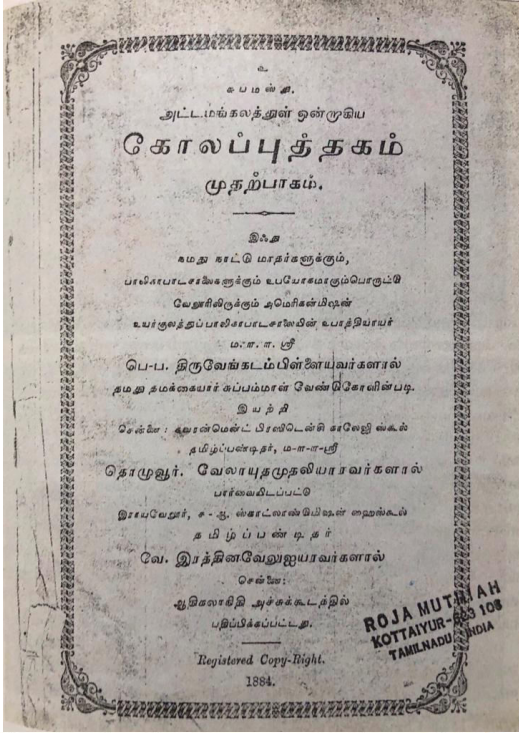 உ
சுபமஸ்து.
அட்டமங்கலத்துள் ஒன்றாகிய
கோலப்புத்தகம்
முதற்பாகம்.
இஃது
நமது நாட்டு மாதர்களுக்கும்,
பாலிகாபாடசாலைகளுக்கும் உபயோகமாகும்பொருட்டு
வேலூரிலிருக்கும் அமெரிகன்மிஷன்
உயர்குலத்துப் பாலிகாபாடசாலையின் உபாத்தியாயர்
ம-ள-ள-ஸ்ரீ
பெ-ப. திருவேங்கடம்பிள்ளையவர்களால்
தமது தமக்கையார் சுப்பம்மாள் வேண்டுகோளின்படி
இயற்றி
சென்னை : கவரன்மென்ட் பிரஸிடென்ஸி காலேஜ் ஸ்கூல்
தமிழ்ப்பண்டிதர், ம-ள-ள-ஸ்ரீ
தொழுவூர். வேலாயுதமுதலியாரவர்களால்
பார்வையிடப்பட்டு
இராயவேலூர், ச-ஆ. ஸ்காட்லாண்டுமிஷன் ஹைஸ்கூல்
தமிழ்ப்பண்டிதர்
வே. இரத்தினவேலுஐயரவர்களால்
சென்னை:
ஆதிகலாநிதி அச்சுக்கூடத்தில்
பதிப்பிக்கப்பட்டது.
Registered Copy-Right.
1884.
ROJA MUTHIAH
KOTTAIYUR-623 106
TAMILNADU INDIA